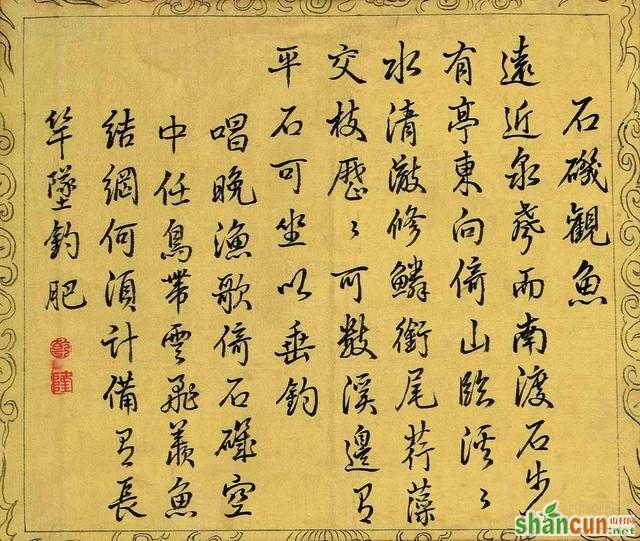 石磯觀魚
遠近泉聲而南渡石步
有亭東向倚山臨溪々
水清澈修鱗銜尾荇藻
交枝歷々可數溪邊有
平石可坐以垂釣
唱晚漁歌倚石磯空
中任鳥帶雲飛羨魚
結網何須計備有長
竿墜釣肥
shancun
山村网
.net